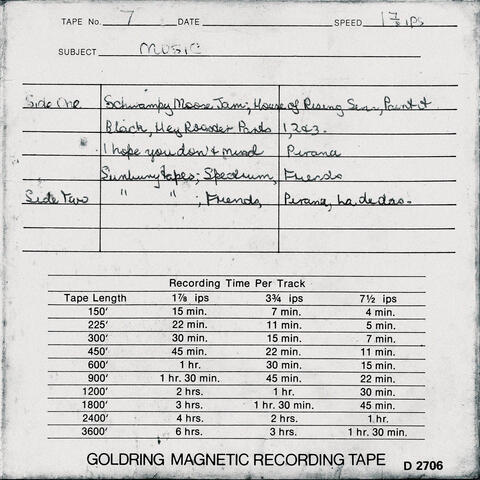 TAPE No. 7 DATE SPEED 1 7/8 IPS
SUBJECT MUSIC
Side One Schwampy Moose Jam; House of Rising Sun, Paint it
Black, Hey Rooster Parts 1, 2 & 3.
I hope you don't mind Pirana
Sunbury tapes; Spectrum, Friends
Side Two " " ; Friends, Pirana, La de das.
Recording Time Per Track
Tape Length 1⅞ ips 3¾ ips 7½ ips
150' 15 min. 7 min. 4 min.
225' 22 min. 11 min. 5 min.
300' 30 min. 15 min. 7 min.
450' 45 min. 22 min. 11 min.
600' 1 hr. 30 min. 15 min.
900' 1 hr. 30 min. 45 min. 22 min.
1200' 2 hrs. 1 hr. 30 min.
1800' 3 hrs. 1 hr. 30 min. 45 min.
2400' 4 hrs. 2 hrs. 1 hr.
3600' 6 hrs. 3 hrs. 1 hr. 30 min.
GOLDRING MAGNETIC RECORDING TAPE D 2706